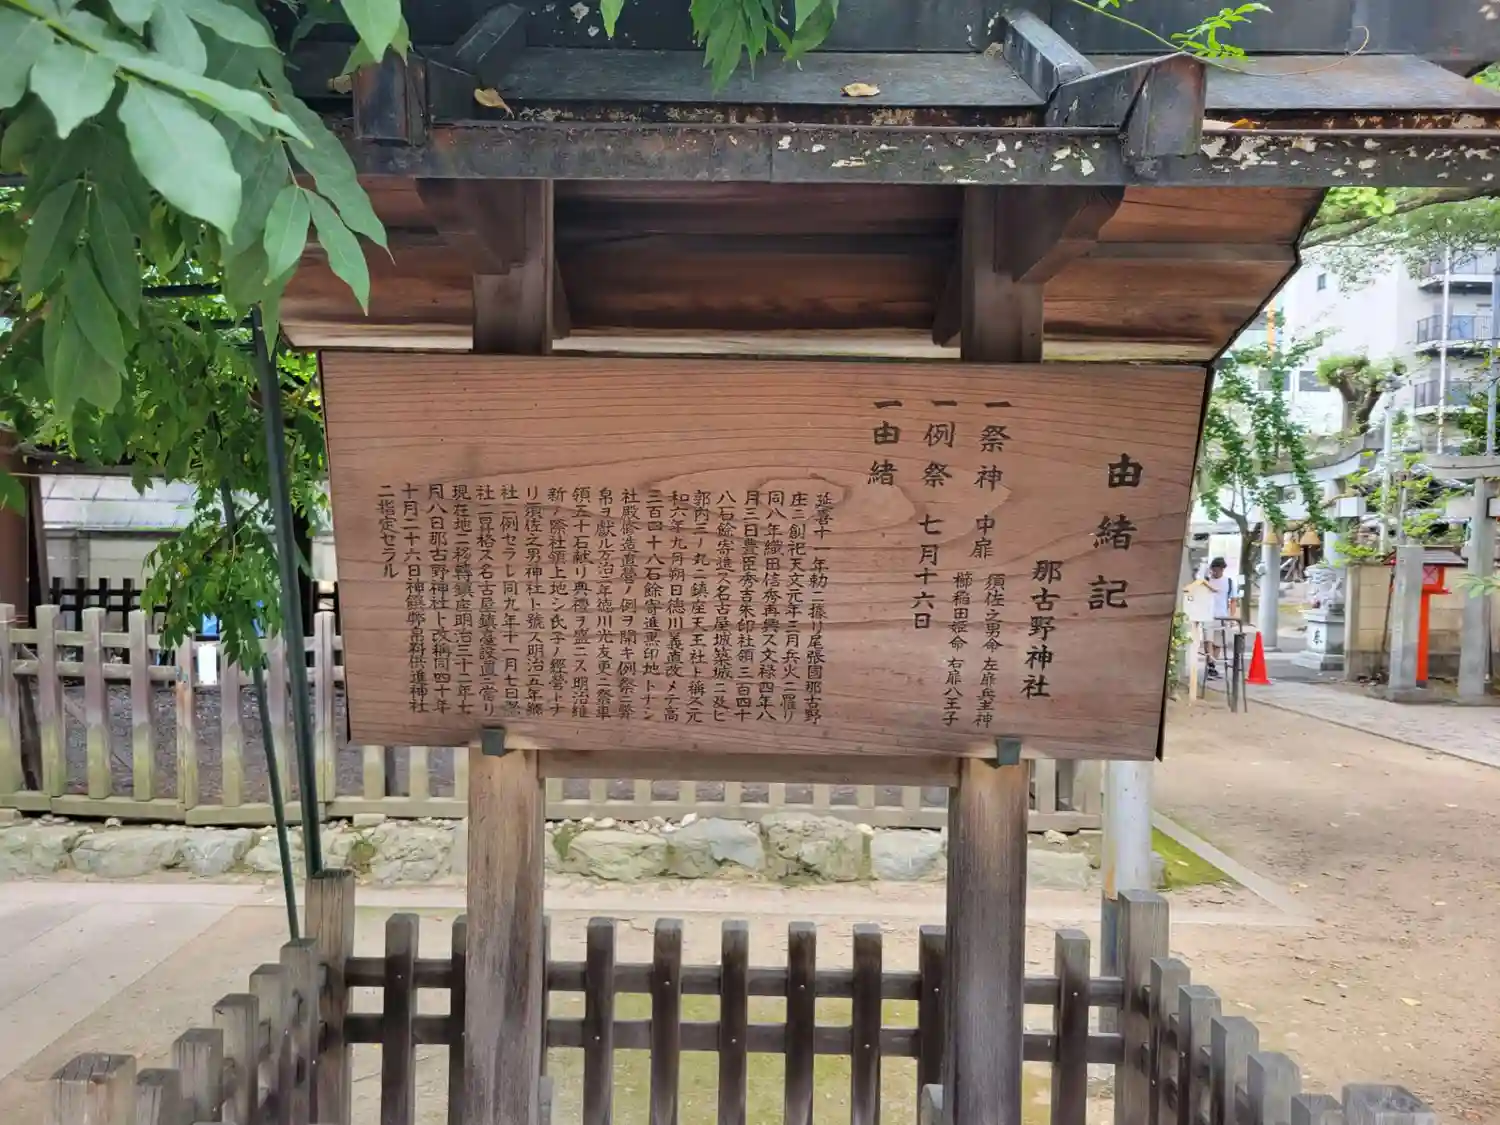 由緒記
那古野神社
一祭神 中扉 須佐之男命 左扉兵主神
櫛稲田姫命 右扉八王子
一例祭 七月十六日
一由緒
延喜十一年勅ニ據リ尾張國那古野
庄ニ創祀天文元年三月兵火ニ罹リ
同八年織田信秀再興ス文禄四年八
月三日豊臣秀吉朱印社領三百四十
八石餘寄進ス名古屋城築城ニ及ビ
郭內二ノ丸ニ鎮座天王社ト稱ス元
和六年九月朔日徳川義直改メテ高
三百四十八石餘寄進黒印地トナシ
社殿修造直營ノ例ヲ開キ例祭ニ弊
帛ヲ獻ル万治二年徳川光友更ニ祭車
領五十石献リ典禮ヲ盛ニス明治維
新ノ際社領上地シ氏子ノ經營トナ
リ須佐之男神社ト號ス明治五年郷
社ニ例セラレ同九年十一月七日縣
社ニ昇格ス名古屋鎮臺設置ニ當リ
現在地ニ移轉鎮座明治三十二年七
月八日那古野神社ト改稱同四十年
十月二十六日神饌幣帛料供進神社
ニ指定セラル